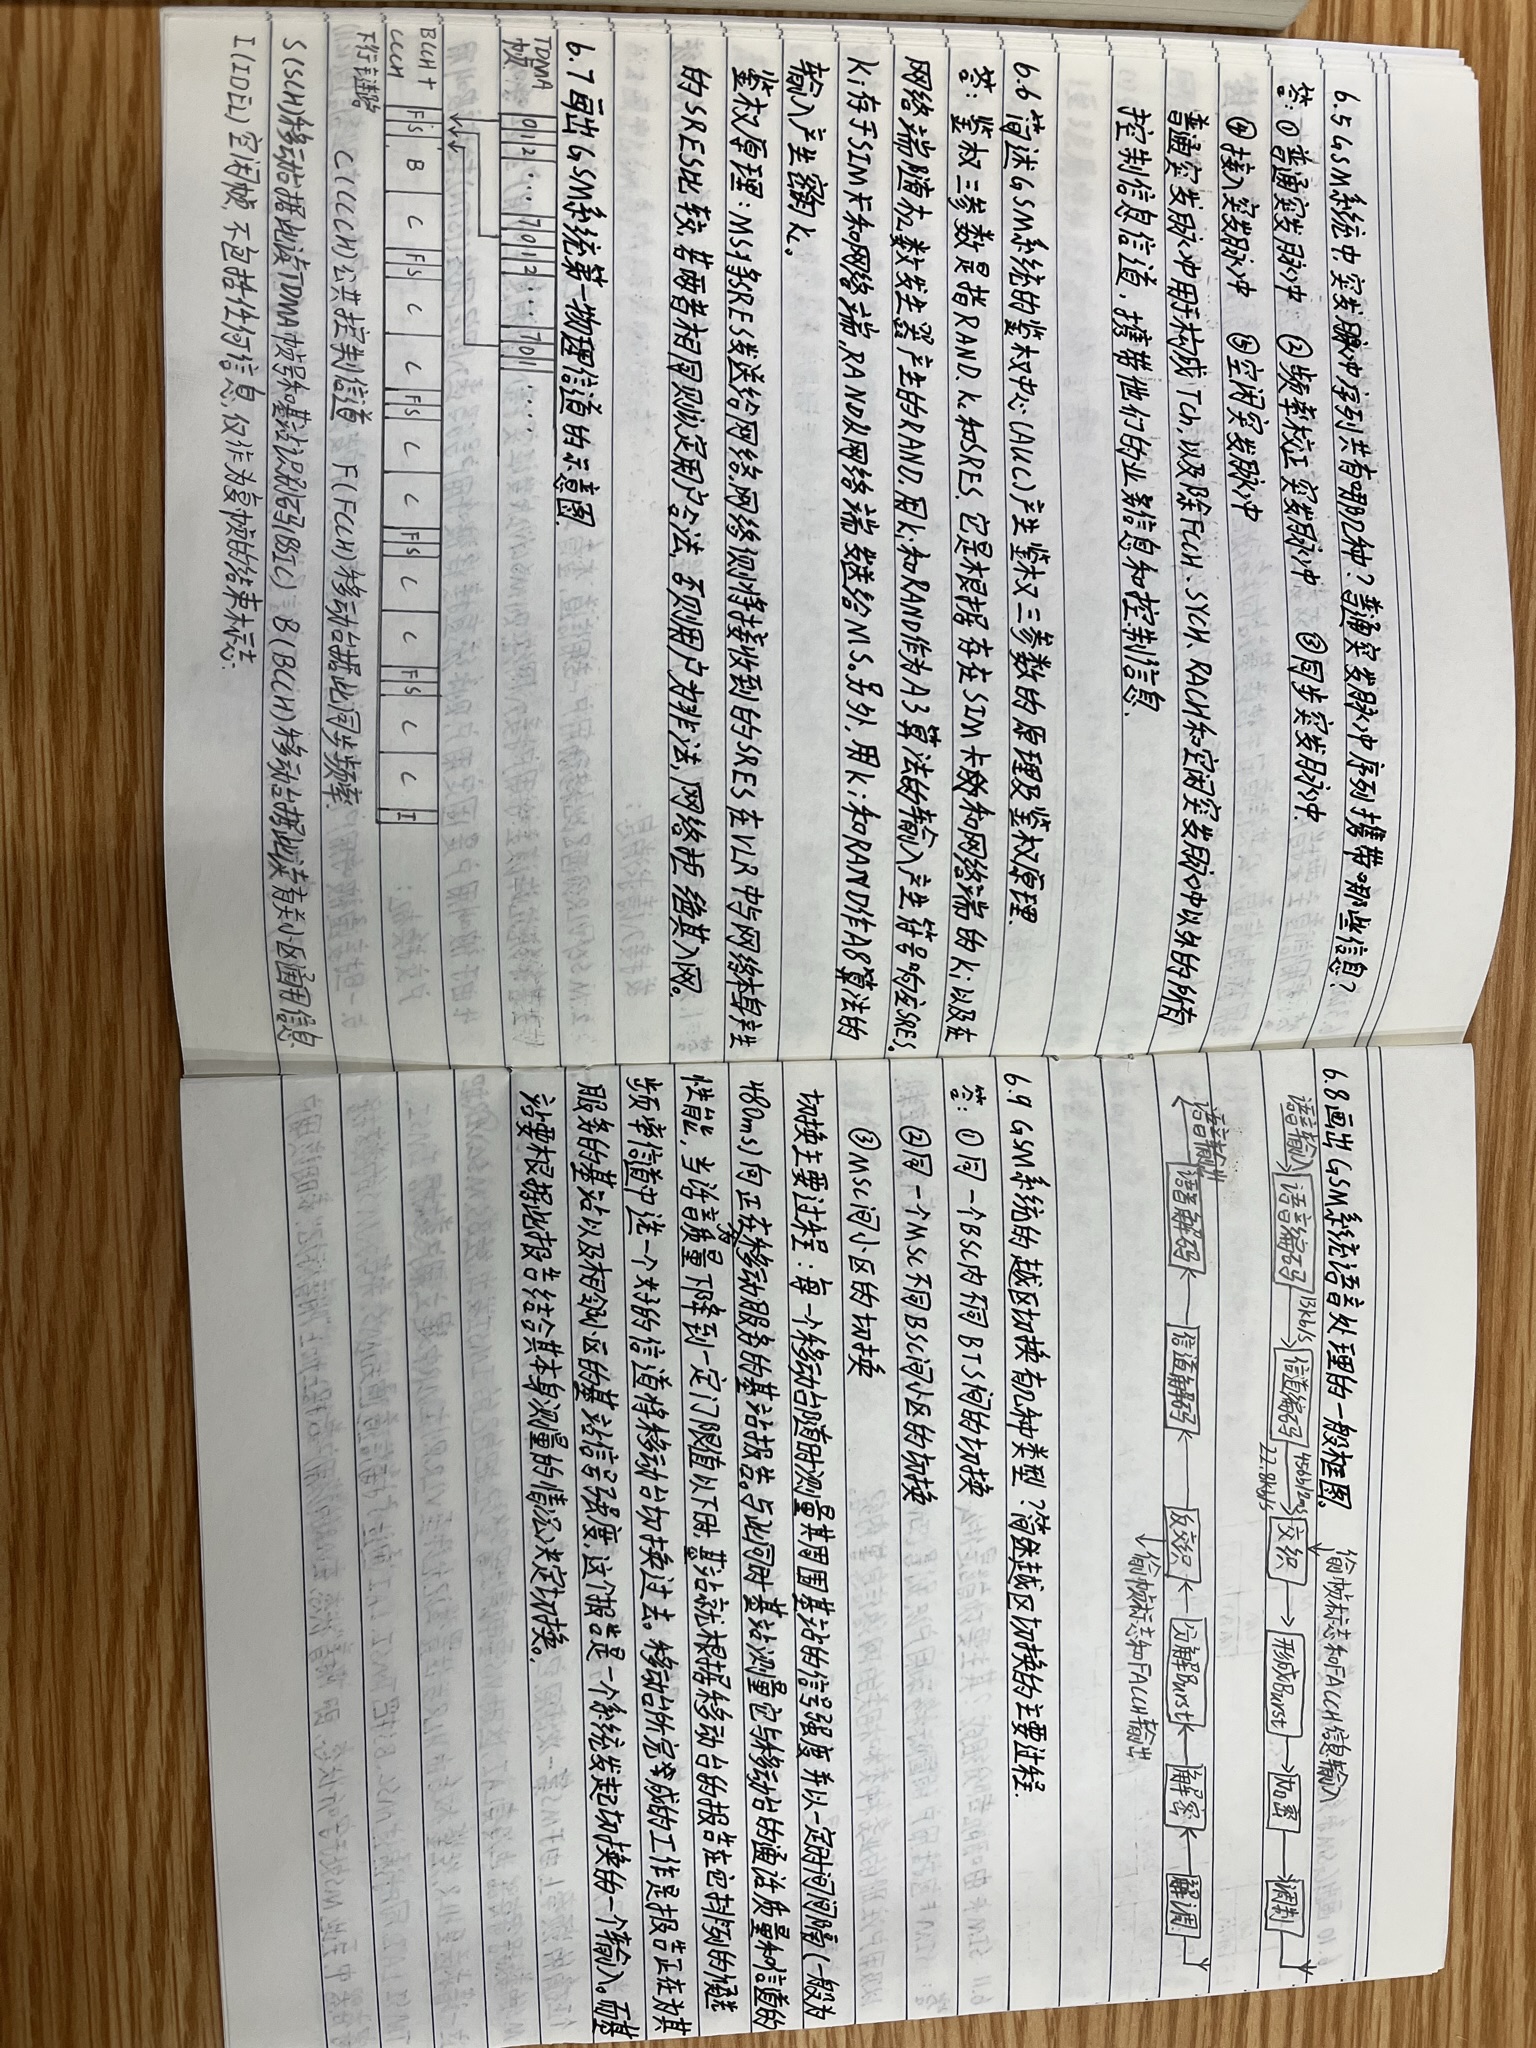 6.5 GSM系统中,突发脉冲序列共有哪几种?普通突发脉冲序列携带哪些信息?
答:①普通突发脉冲 ②频率校正突发脉冲 ③同步突发脉冲.
④接入突发脉冲 ⑤空闲突发脉冲
普通突发脉冲用于构成TCh,以及除FCCH、SYCH、RACH和空闲突发脉冲以外的所有
控制信息信道,携带他们的业务信息和控制信息.
6.6 简述GSM系统的鉴权中心(AUC)产生鉴权三参数的原理及鉴权原理.
答:鉴权三参数是指RAND、kc和SRES,它是根据存在SIM卡和网络端的ki以及在
网络端随机数发生器产生的RAND,用ki和RAND作为A3算法的输入产生符号响应SRES,
ki存于SIM卡和网络端,RAND从网络端发送给MS。另外,用ki和RAND作A8算法的
输入产生密钥kc。
鉴权原理:MS将SRES发送给网络,网络侧将接收到的SRES在VLR中与网络本身产生
的SRES比较,若两者相同则认定用户合法,否则用户为非法,网络拒绝其入网。
6.7 画出GSM系统第一物理信道的示意图.
TDMA
帧: 0 1 2 ... 7 0 1 2 ... 7 0 1 ....
BCCH+
CCCH
下行主链路
FS B C FS C C FS C C FS C C FS C C I
C(CCCH)公共控制信道 F(FCCH)移动台据此同步频率.
S(SCH)移动站据此读TDMA帧号和基站识别码(BSIC);B(BCCH)移动台据此读有关小区通用信息
I(IDEL)空闲帧,不包括任何信息,仅作为复帧的结束标志.
6.8 画出GSM系统语音处理的一般框图。
偷帧标志和FACCH信息输入
语音输入 语音编码 13kb/s 信道编码 456b/20ms 22.8kb/s 交织 形成Burst 加密 调制
语音输出 语音解码 信道解码 反交织 分解Burst 解密 解调
偷帧标志和FACCH输出
6.9 GSM系统的越区切换有几种类型?简述越区切换的主要过程.
答:①同一个BSC内不同BTS间的切换
②同一个MSC不同BSC间小区的切换
③MSC间小区的切换
切换主要过程:每一个移动台随时测量其周围基站的信号强度,并以一定时间间隔(一般为
480ms)向正在为移动服务的基站报告。与此同时,基站测量它与移动台的通话质量和信道的
性能,当语音质量下降到一定门限值以下时,基站就根据移动台的报告在它排列的候选
频率信道中选一个好的信道将移动台切换过去。移动台所完成的工作是报告正在为其
服务的基站以及相邻小区的基站信号强度,这个报告是一个系统发起切换的一个输入。而基
站要根据此报告结合其本身测量的情况决定切换。